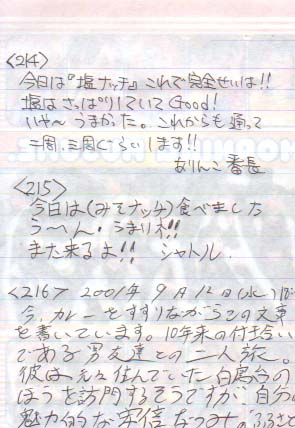 <214>
今日は『塩ナッチ』これで完全せいは!!
塩はさっぱりしていてGood!
いや〜うまかった。これからも通って
二周、三周ぐらいします!!
ありんこ番長
<215>
今日は(みそナッチ)食べました
う〜へん。うまり木!!
また来るよ!! シャトル.
<216> 2001年9月12日(水)
今、カレーをすすりながらこの文章
を書いています。10年来の付き合い
である男友達との二人旅。
彼は元々住んでいた白鳥台の
ほうを訪問するそうですが、自分の
魅力的な